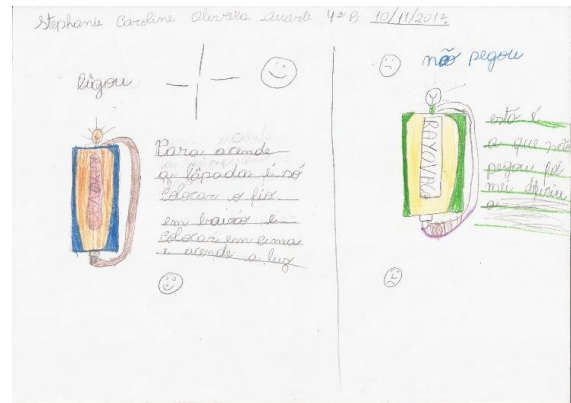 Stephanie Caroline Oliveira Duarte 4º B 10/11/2015
ligou
RAYOVAC
Para acende
a lâpada é só
colocar o fio
em baixo e
colocar em cima
e acende a luz
não pegou
RAYOVAC
está é
a que não
pegou foi
mei dificiu